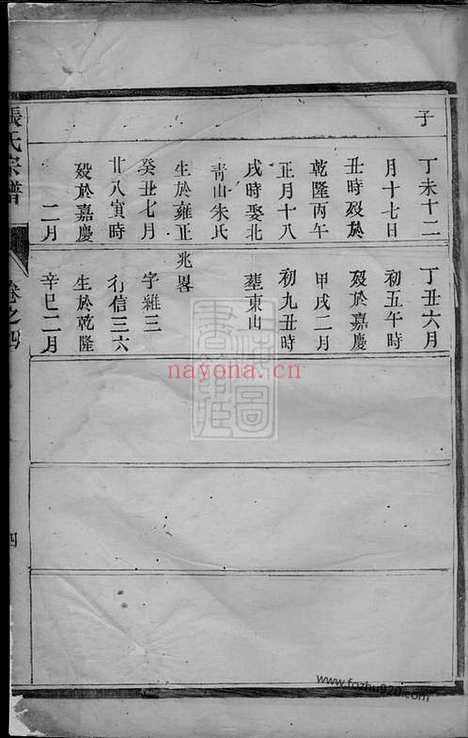 子
丁未十二
月十七日
丑時歿於
乾隆丙午
正月十八
戌時娶北
青山朱氏
生於雍正
癸丑七月
廿八寅時
歿於嘉慶
二月
丁丑六月
初五午時
歿於嘉慶
甲戌二月
初九丑時
塟東山
兆畧
字雒三
行信三六
生於乾隆
辛巳二月
張氏宗譜
卷之四
四
nayona.cn
www.fozhu920.com